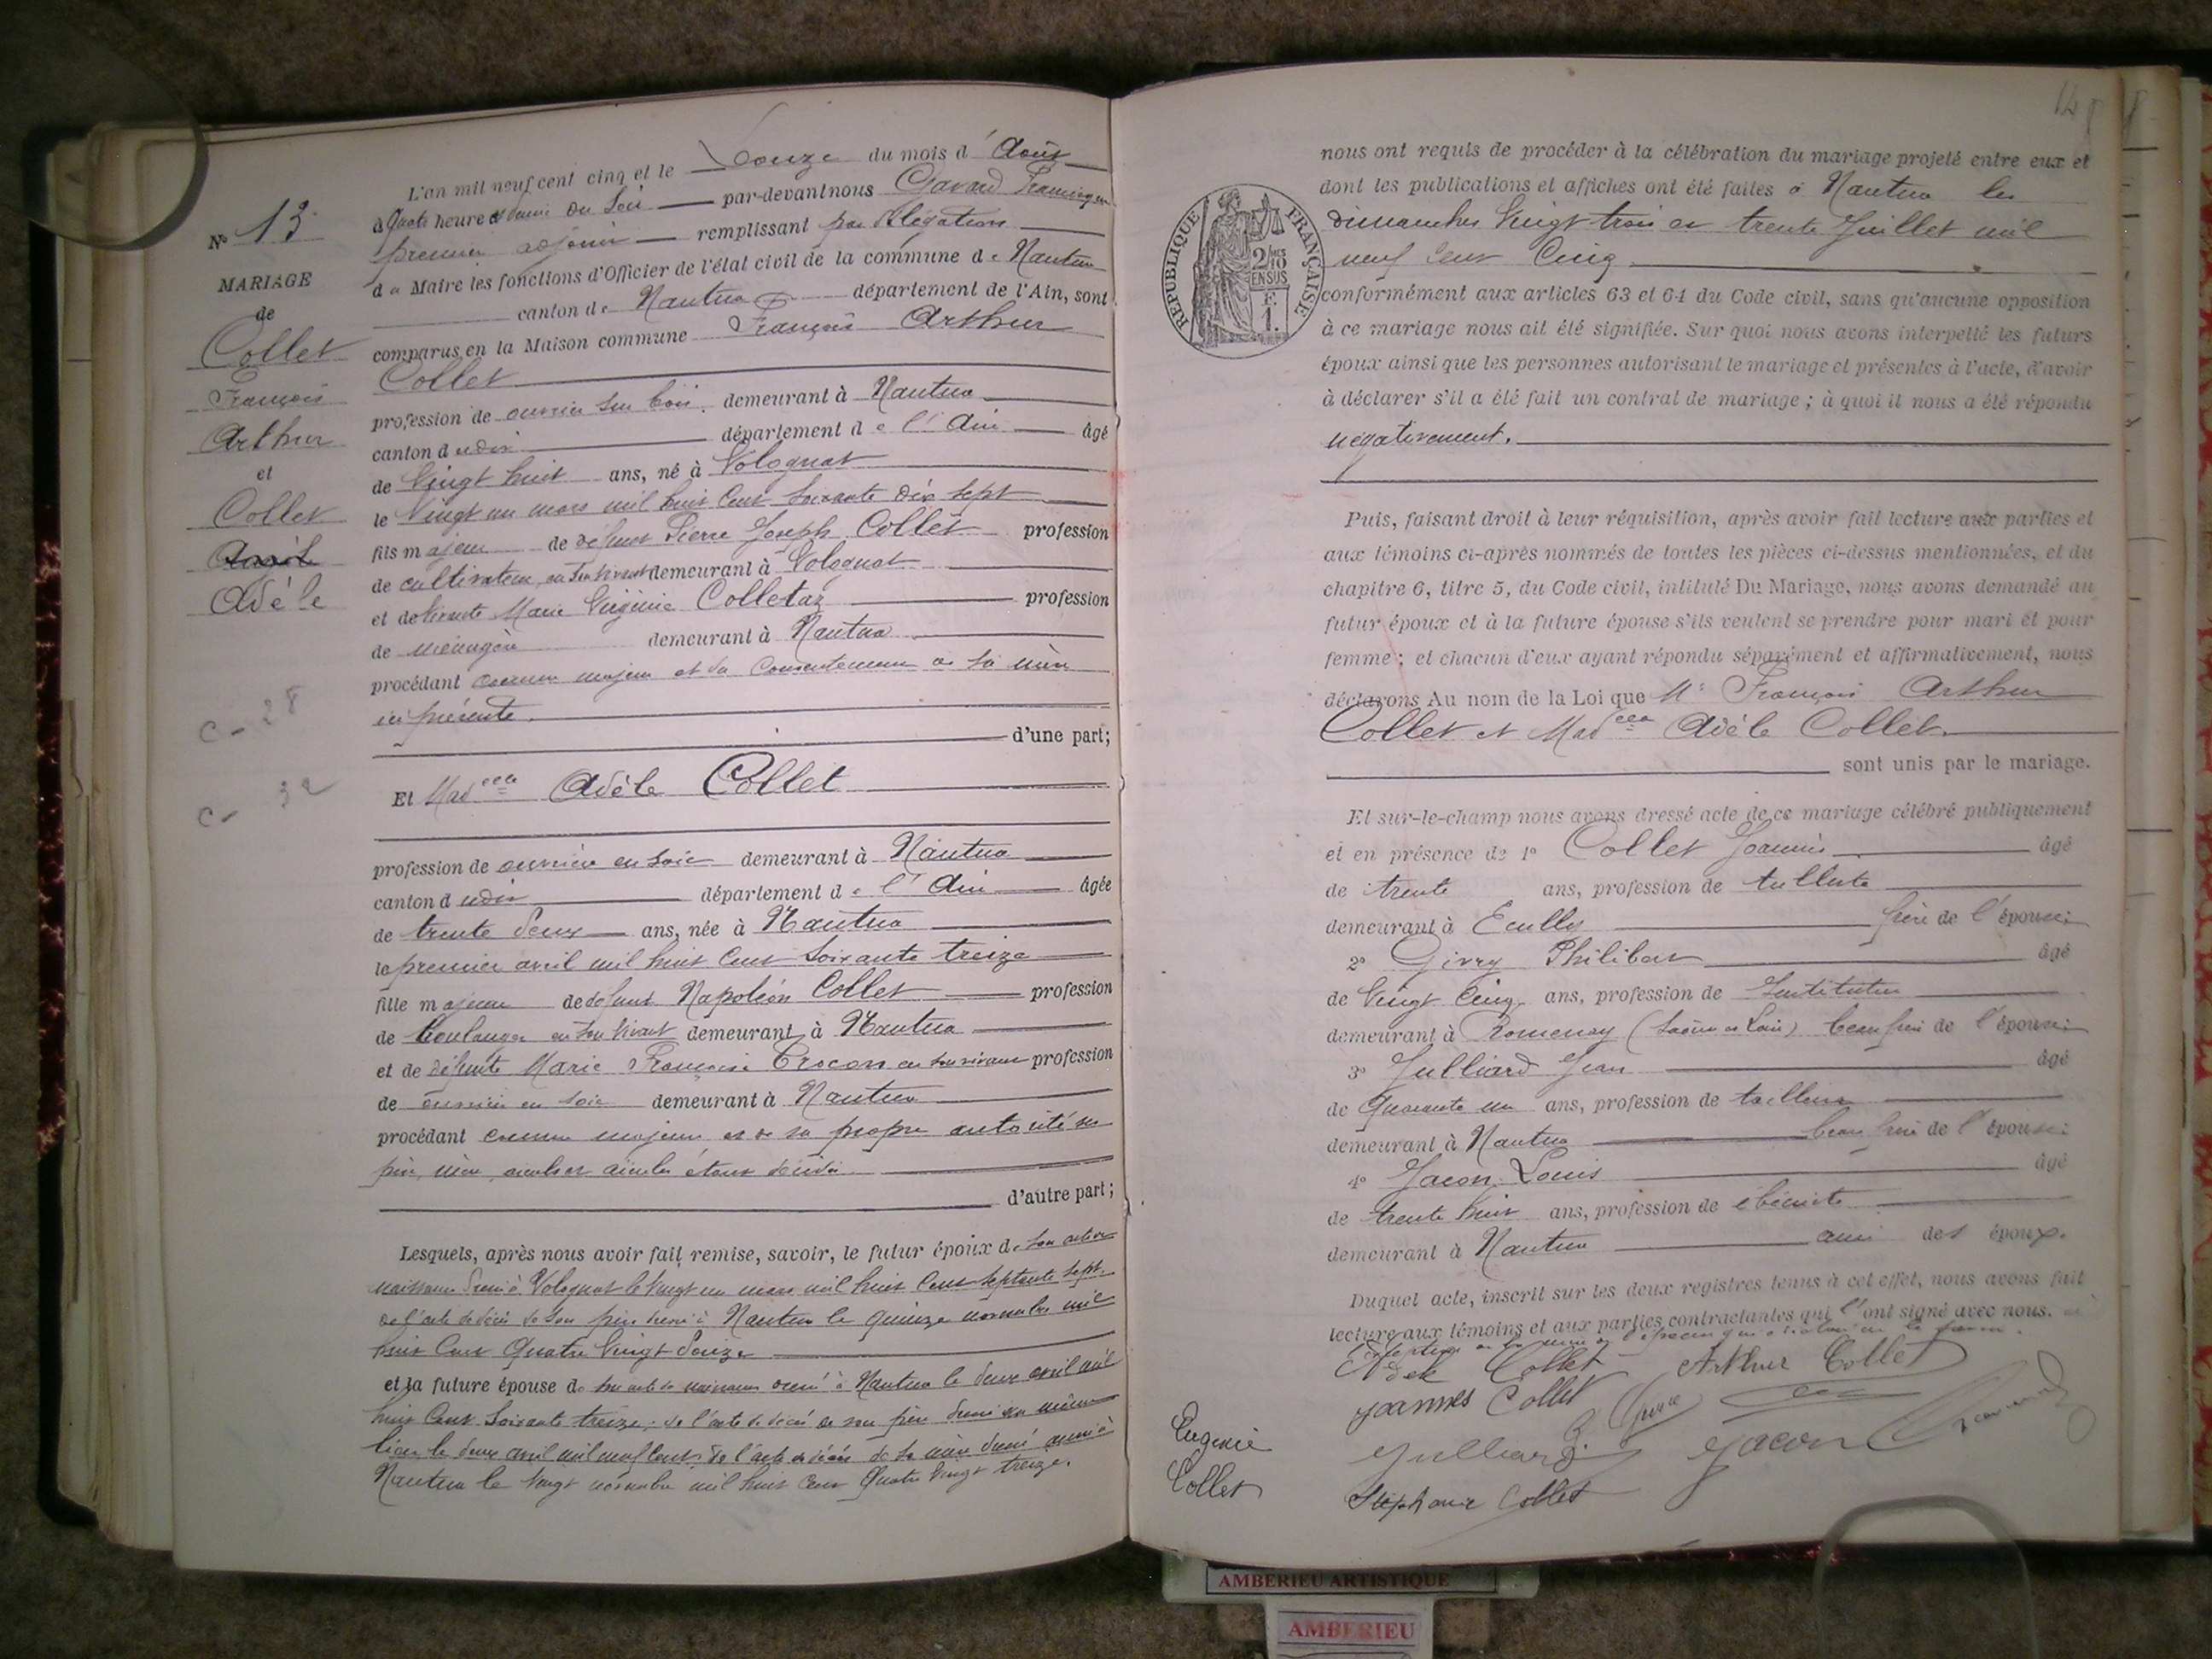 L'an mil neuf cent cinq et le Douze du mois d'Août
à Quatre heures et demie du Soir par-devant nous Gavard François
premier adjoint remplissant par délégation
du Maire les fonctions d'Officier de l'état civil de la commune de Nantua
canton de Nantua département de l'Ain, sont
comparus en la Maison commune François Arthur
Collet
profession de ouvrier sur bois demeurant à Nantua
canton dudit département de l'Ain âgé
de Vingt huit ans, né à Volognat
le Vingt un mars mil huit Cent Soixante dix sept
fils majeur de défunt Pierre Joseph Collet profession
de cultivateur en son vivant demeurant à Volognat
et de vivante Marie Virginie Colletaz profession
de ménagère demeurant à Nantua
procédant comme majeur et du Consentement de sa mère
ici présente.
d'une part;
Et Mad.elle Adèle Collet
profession de ouvrière en soie demeurant à Nantua
canton dudit département de l'Ain âgée
de trente deux ans, née à Nantua
le premier avril mil huit Cent Soixante treize
fille majeure de défunt Napoléon Collet profession
de Boulanger en son vivant demeurant à Nantua
et de défunte Marie Françoise Crocon en son vivant profession
de ouvrière en soie demeurant à Nantua
procédant comme majeure et de sa propre autorité ses
père, mère, aieuls et aieules étant décédés
d'autre part;
Lesquels, après nous avoir fait remise, savoir, le futur époux de son acte de
naissance dressé à Volognat le Vingt un mars mil huit Cent Septante sept.
de l'acte de décès de son père dressé à Nantua le quinze novembre mil
huit Cent Quatre Vingt Douze
et la future épouse de son acte de naissance dressé à Nantua le deux avril mil
huit Cent Soixante treize; de l'acte de décès de son père dressé au même
lieu le deux avril mil neuf Cent; de l'acte de décès de sa mère dressé aussi à
Nantua le Vingt novembre mil huit Cent Quatre Vingt treize.
N° 13
MARIAGE
de
Collet
François
Arthur
et
Collet
Adèle
C - 28
C - 32
nous ont requis de procéder à la célébration du mariage projeté entre eux et
dont les publications et affiches ont été faites à Nantua les
dimanches Vingt-trois et trente Juillet mil
neuf Cent Cinq
conformément aux articles 63 et 64 du Code civil, sans qu'aucune opposition
à ce mariage nous ait été signifiée. Sur quoi nous avons interpellé les futurs
époux ainsi que les personnes autorisant le mariage et présentes à l'acte, d'avoir
à déclarer s'il a été fait un contrat de mariage; à quoi il nous a été répondu
négativement.
Puis, faisant droit à leur réquisition, après avoir fait lecture aux parties et
aux témoins ci-après nommés de toutes les pièces ci-dessus mentionnées, et du
chapitre 6, titre 5, du Code civil, intitulé Du Mariage, nous avons demandé au
futur époux et à la future épouse s'ils veulent se prendre pour mari et pour
femme; et chacun d'eux ayant répondu séparément et affirmativement, nous
déclarons Au nom de la Loi que Mr François Arthur
Collet et Mad.elle Adèle Collet
sont unis par le mariage.
Et sur-le-champ nous avons dressé acte de ce mariage célébré publiquement
et en présence de 1° Collet Joannès âgé
de trente ans, profession de tulliste
demeurant à Ecully frère de l'épouse;
2° Givry Philibert âgé
de Vingt Cinq ans, profession de Instituteur
demeurant à Romenay (Saône et Loire) beau frère de l'épouse;
3° Julliard Jean âgé
de Quarante un ans, profession de tailleur
demeurant à Nantua beau frère de l'épouse;
4° Jacon Louis âgé
de trente huit ans, profession de ébéniste
demeurant à Nantua ami des époux.
Duquel acte, inscrit sur les deux registres tenus à cet effet, nous avons fait
lecture aux témoins et aux parties contractantes qui l'ont signé avec nous.
Collet Arthur Collet
Joannès Collet
Julliard Jacon
Stéphanie Collet
Eugénie
Collet
RÉPUBLIQUE FRANÇAISE
2/10 EN SUS
F.
1.
AMBERIEU ARTISTIQUE
AMBERIEU